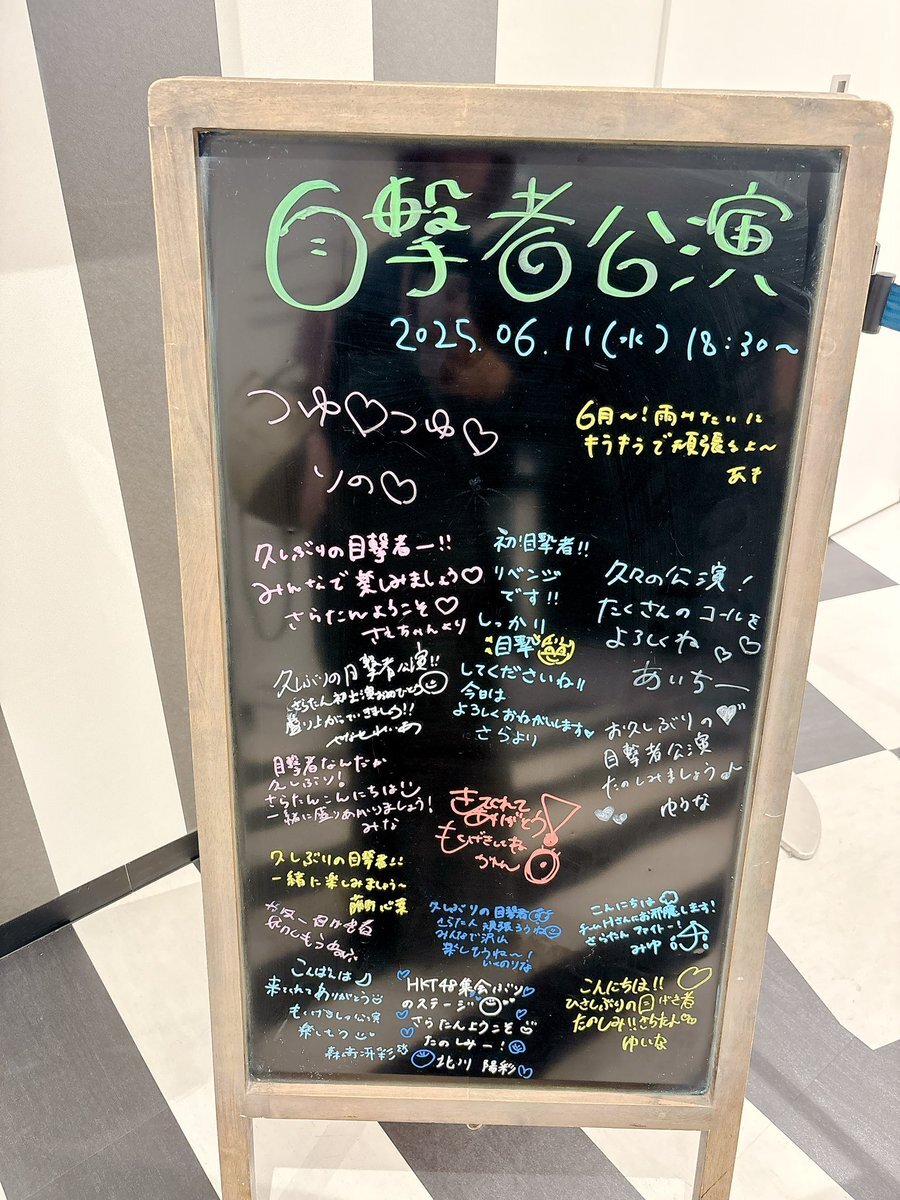 目撃者公演
2025.06.11(水) 18:30~
つゆ♡つゆ♡
りの♡
6月〜!雨みたいに
もうもうで頑張るよ〜
あき
久しぶりの目撃者ー!!
みんなで楽しみましょう♡
さらたんようこそ♡
さえちゃんより
初目撃者!!
リベンジ
です!!
しっかり
目撃
してくださいね!!
今日は
よろしくおねがいします
さらより
久々の公演!
たくさんのコールを
よろしくね♡♡
あいちー
久しぶりの目撃者公演!!
さらたん初出演おめでとう
盛り上がっていきましょう!!
お久しぶりの
目撃者公演
たのしみましょう♪
ゆりな
目撃者なんだか
久しぶり!
さらたんこんにちは
一緒に盛りあがりましょう!
みな
きてくれて
ありがとう
もくげきしてね
かれん
久しぶりの目撃者!!
一緒に楽しみましょう〜
久しぶりの目撃者
さらたん頑張ろうね
みんなで沢山
楽しもうね〜!
いぶきりな
こんにちは
チームHさんにお邪魔します!
さらたんファイトー!
みゆ
こんばんは
来てくれてありがとう
もくげきしゃ公演
楽しもう
HKT48集会ぶり
のステージ
さらたんようこそ
たのしみー!
北川 陽彩♡
こんにちは!!
ひさしぶりの目げき者
たのしみ!!さらたん
ゆいな